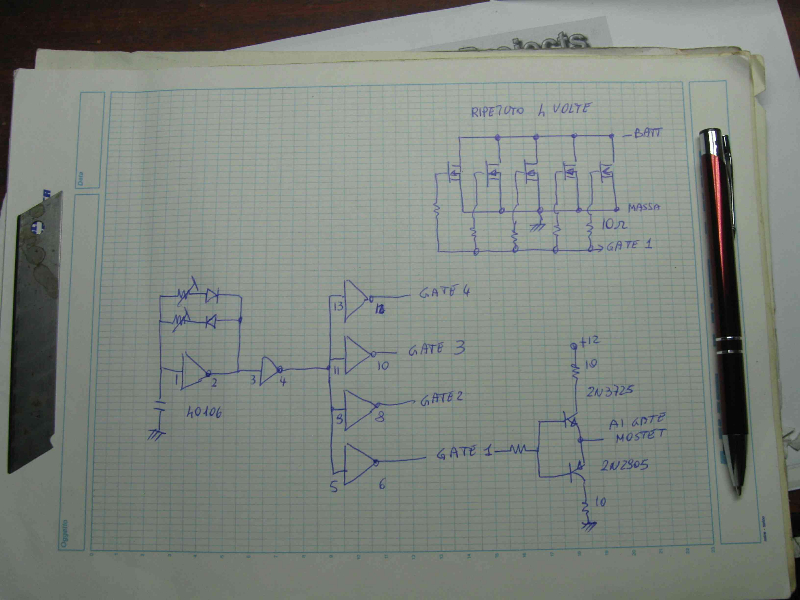 RIPETUTO 4 VOLTE
-BATT
MASSA
10Ω
GATE 1
GATE 4
13
12
GATE 3
11
10
1
2
3
4
40106
GATE2
9
8
GATE 1
5
6
+12
10
2N3725
AI GATE
MOSFET
2N2905
10
Data
Oggetto